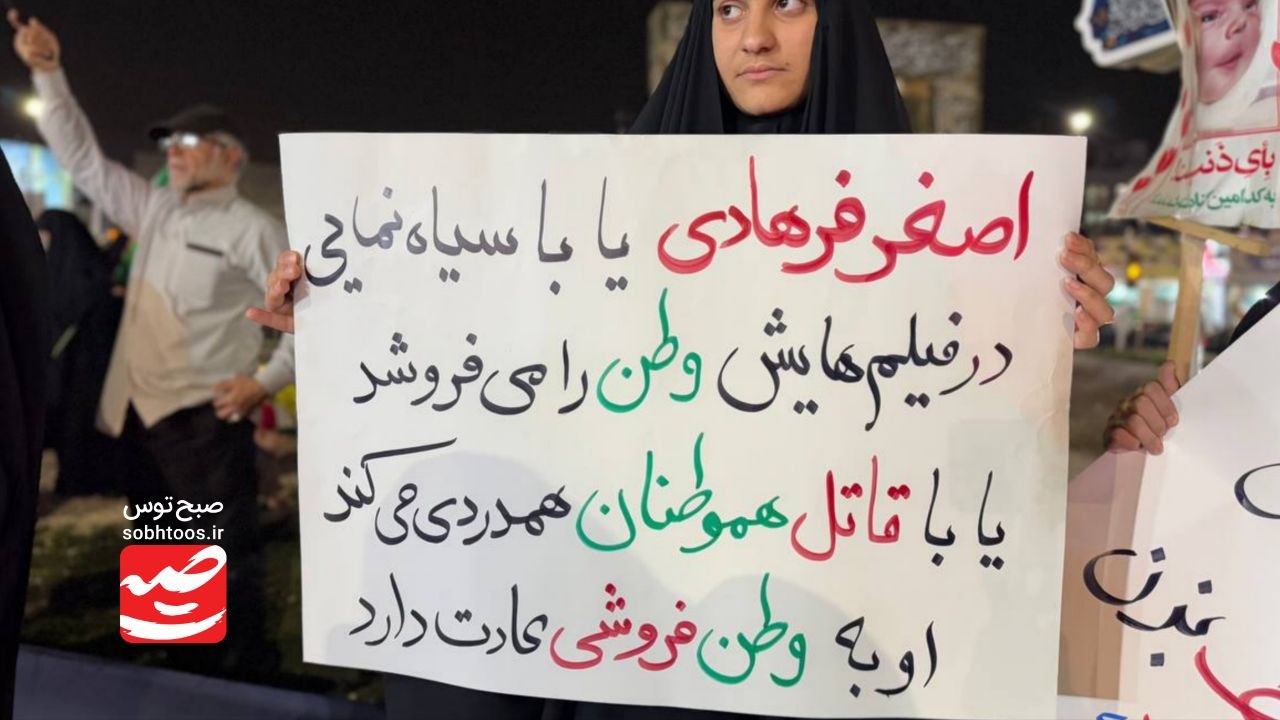 اصغر فرهادی یا با سیاه نمایی
در فیلم هایش وطن را می فروشد
یا با قاتل هموطنان همدردی می کند
او به وطن فروشی عادت دارد
بأی ذنب
به کدامین
صبح توس
sobhtoos.ir